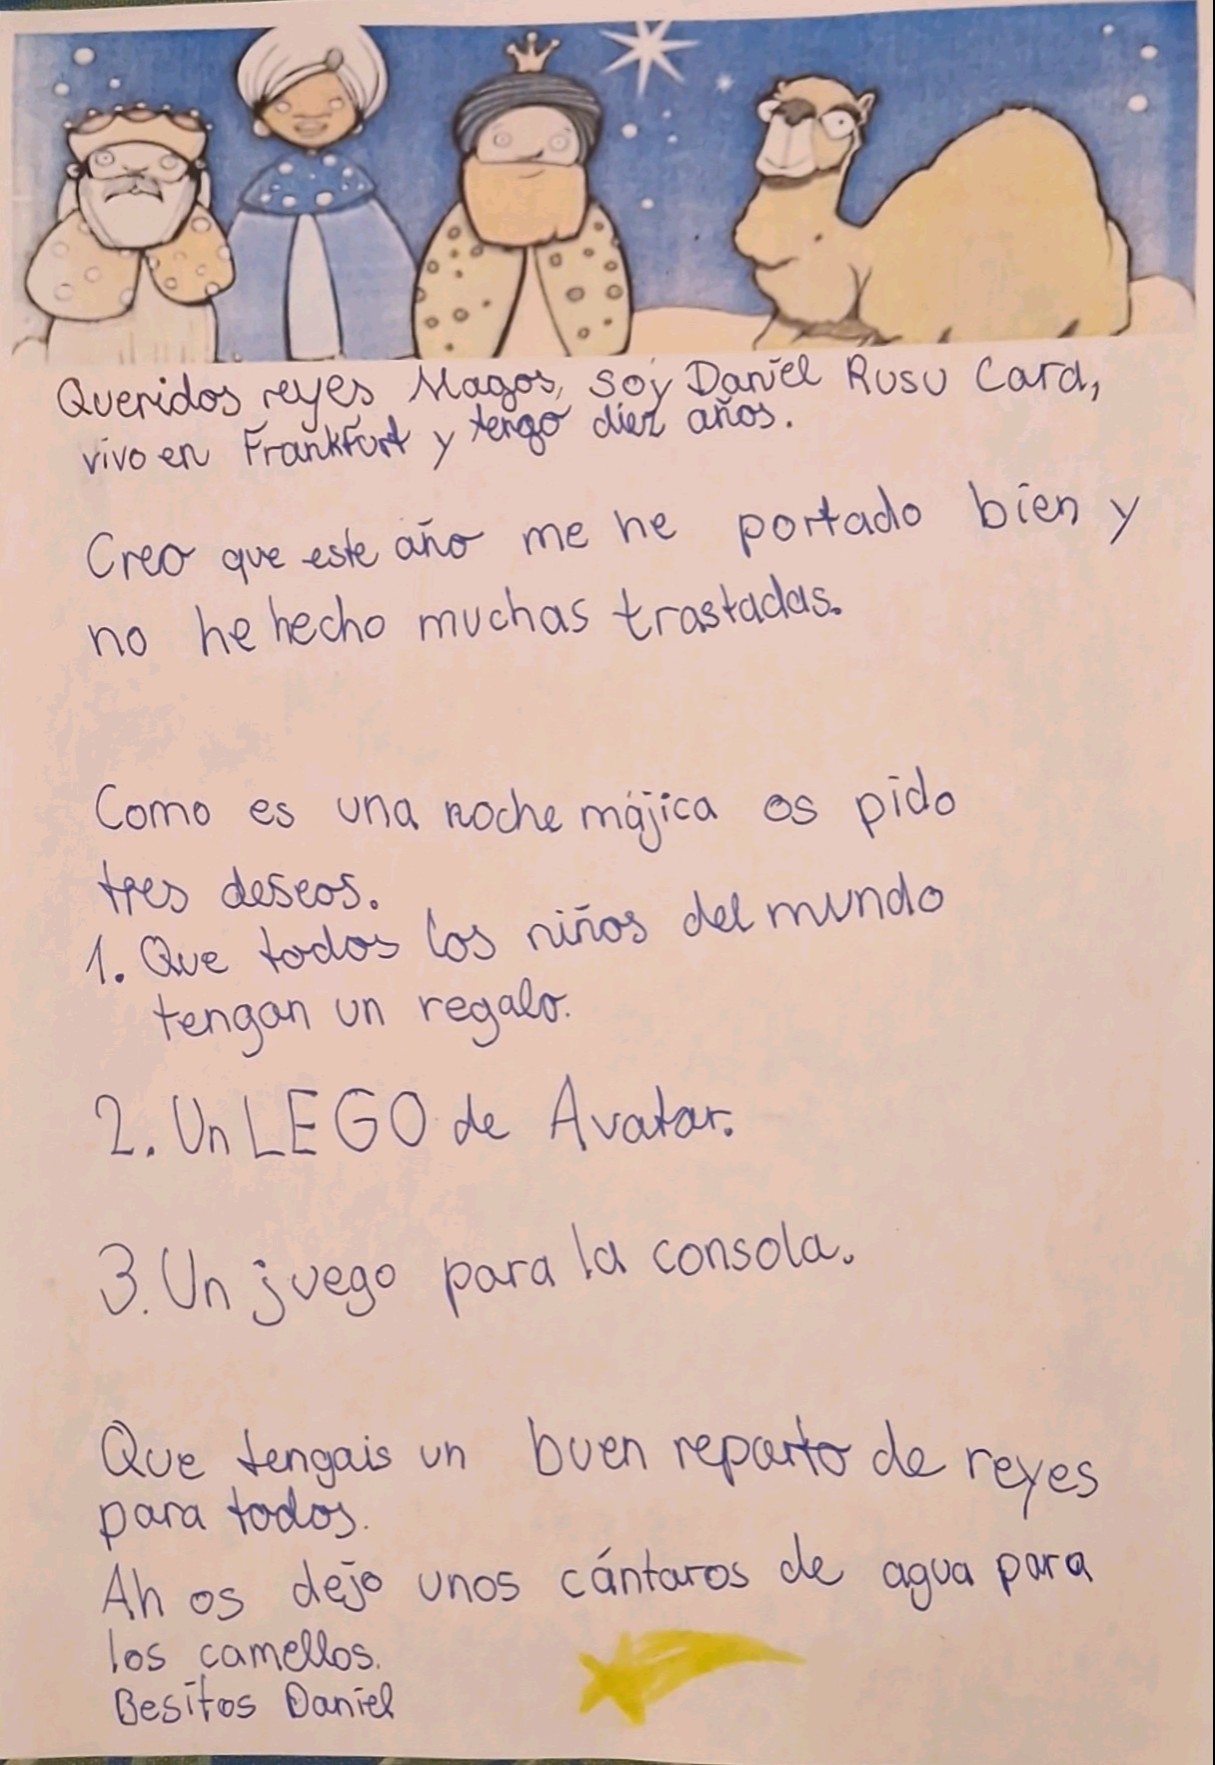 Queridos reyes Magos, soy Daniel Rusu Card,
vivo en Frankfurt y tengo diez años.
Creo que este año me he portado bien y
no he hecho muchas trastadas.
Como es una noche májica os pido
tres deseos.
1. Que todos los niños del mundo
tengan un regalo.
2. Un LEGO de Avatar.
3. Un juego para la consola.
Que tengais un buen reparto de reyes
para todos.
Ah os dejo unos cántaros de agua para
los camellos.
Besitos Daniel